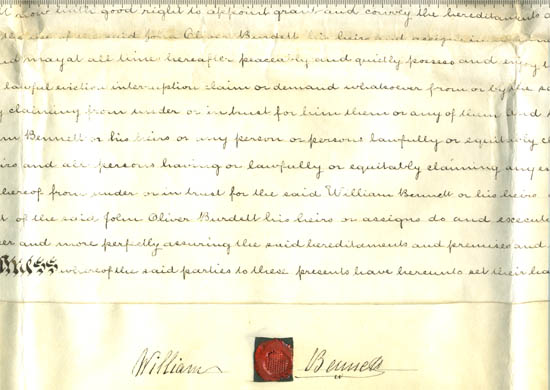 now hath good right to appoint grant and convey the hereditaments
of the said John Oliver Burdett his heirs and assigns
and may at all time hereafter peaceably and quietly possess and enjoy
lawful eviction interruption claim or demand whatsoever from or by the
claiming from under or in trust for him them or any of them and
Bennett or his heirs or any person or persons lawfully or equitably
heirs and all persons having or lawfully or equitably claiming any
thereof from under or in trust for the said William Bennett or his heirs
of the said John Oliver Burdett his heirs or assigns do and execute
and more perfectly assuring the said hereditaments and premises and
whereof the said parties to these presents have hereunto set their
William Bennett